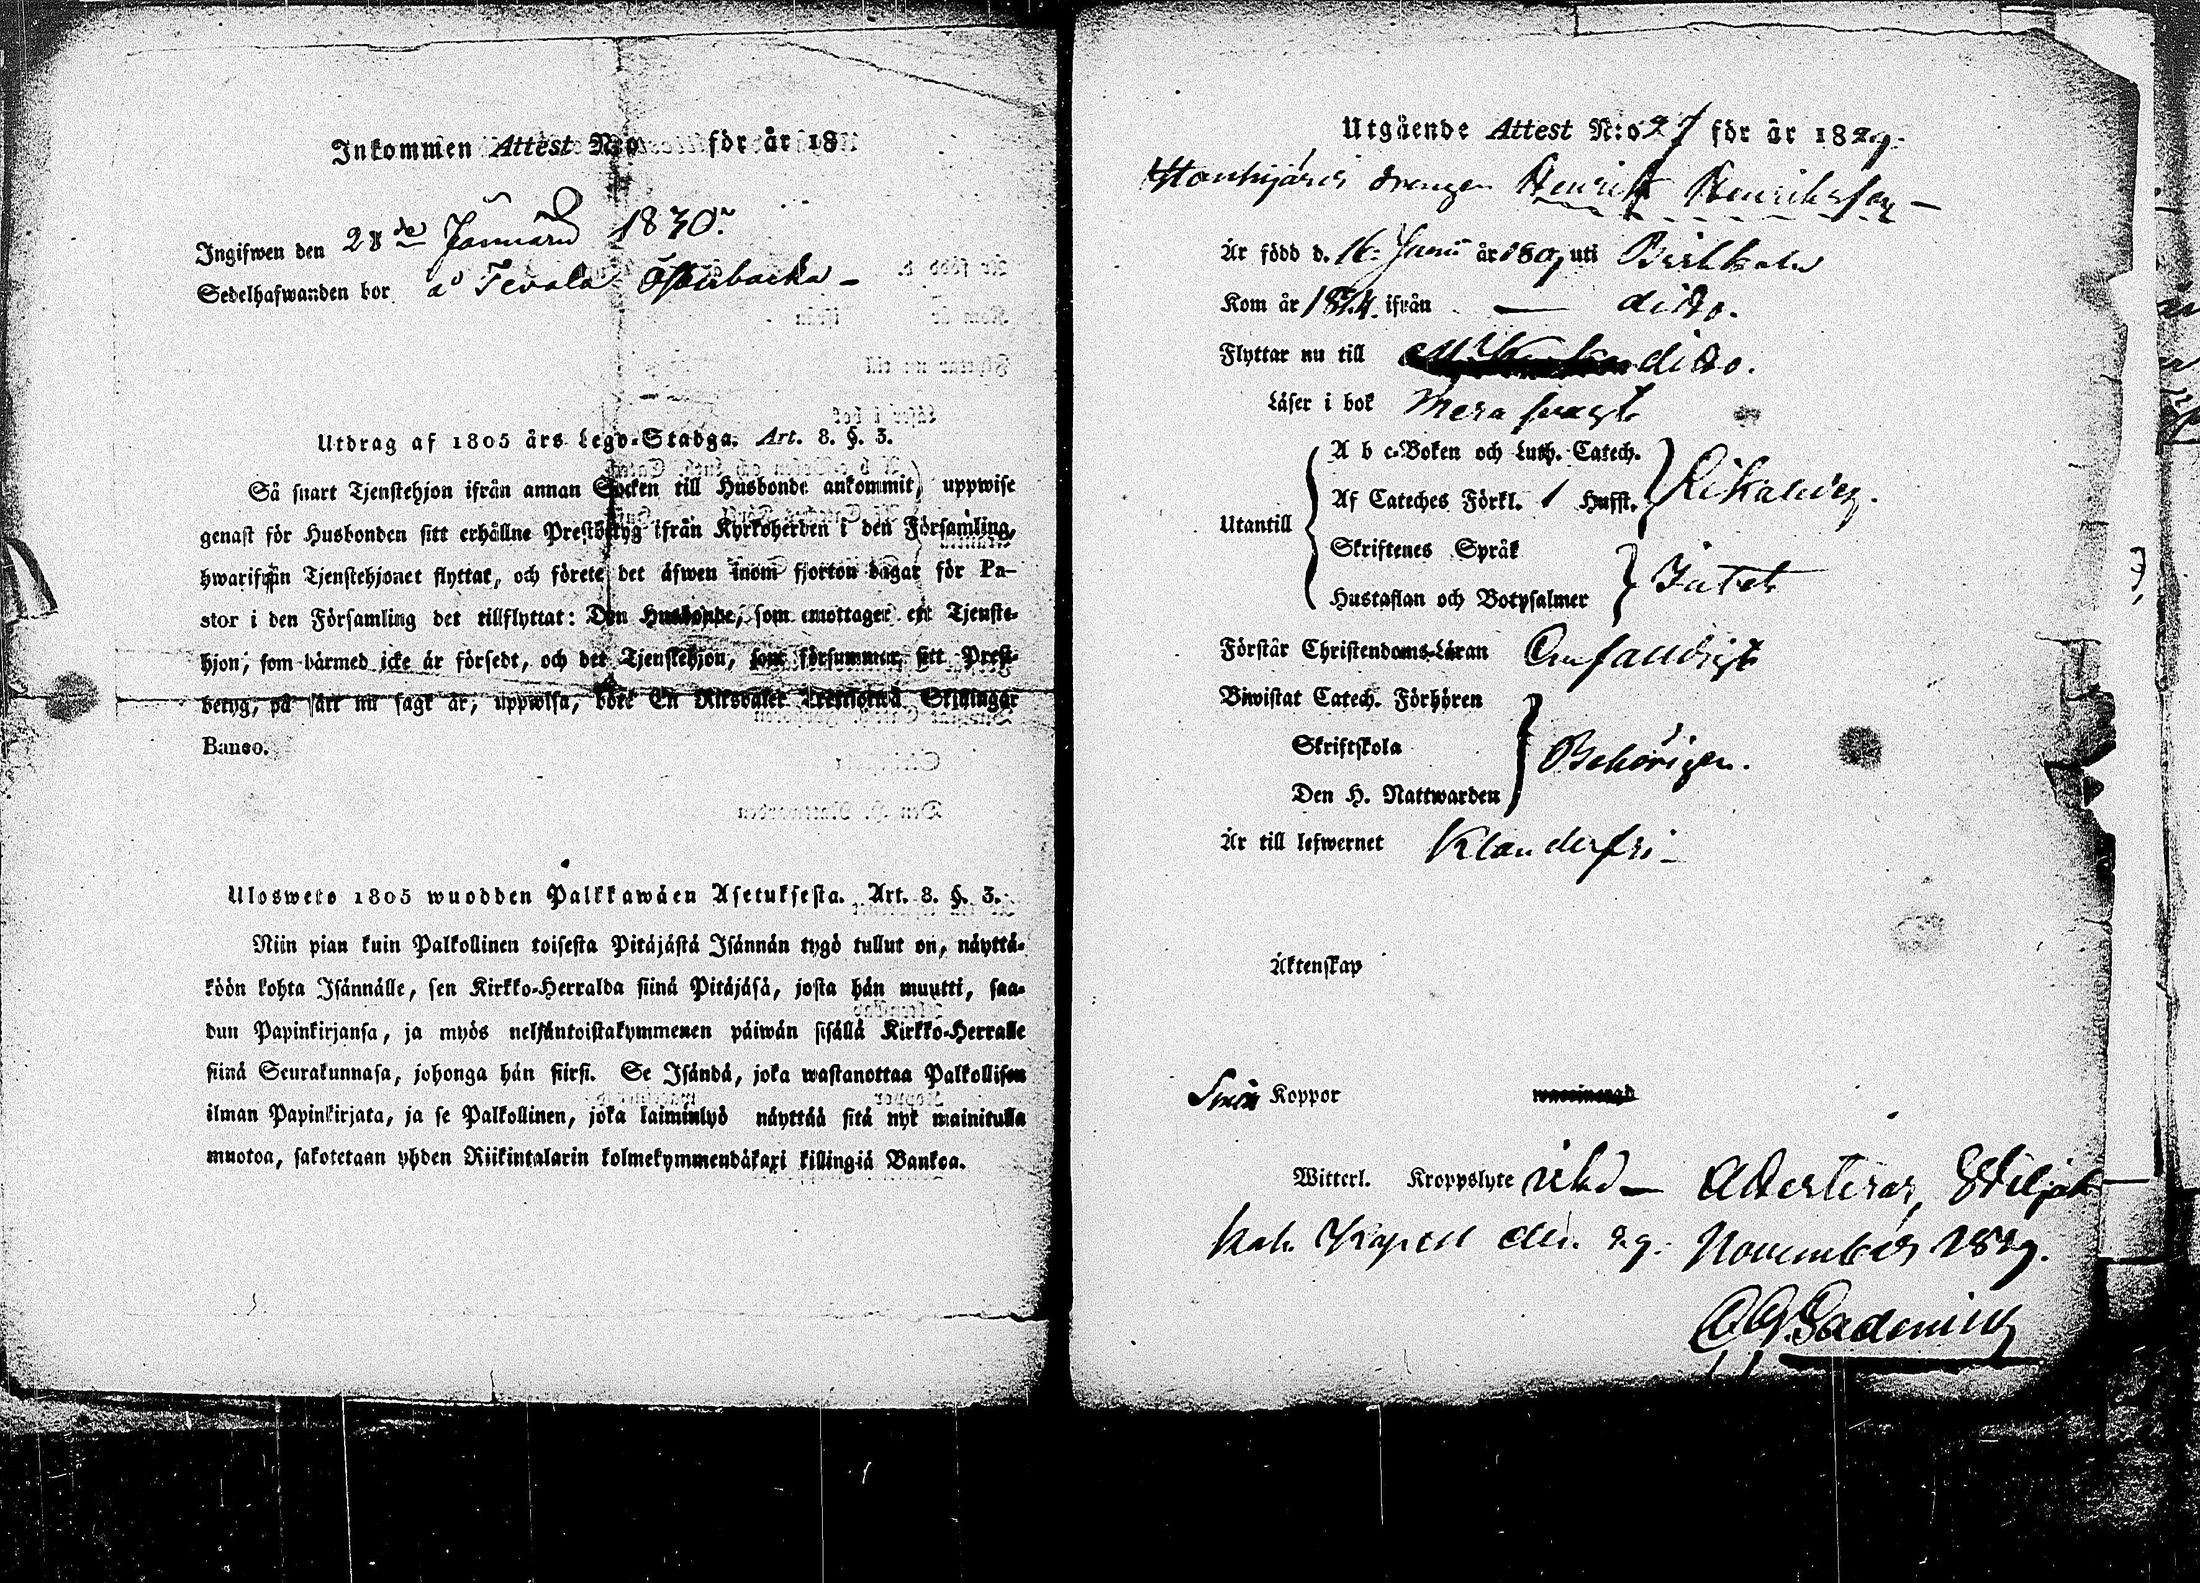 Inkommen Attest N:o för år 18
Ingifwen den 28de Januarii 1830.
Sedelhafwanden bor å Tevala Österbacka –
Utdrag af 1805 års Lego-Stadga. Art. 8. §. 3.
Så snart Tjenstehjon ifrån annan Socken till Husbonde ankommit, uppwise
genast för Husbonden sitt erhållne Prestbetyg ifrån Kyrkoherden i den Församling,
hwarifrån Tjenstehjonet flyttat, och förete det äfwen inom fjorton dagar för Pa-
stor i den Församling det tillflyttat: Den Husbonde, som emottager ett Tjenste-
hjon, som härmed icke är försedt, och det Tjenstehjon, som försummar, sitt Prest-
betyg, på sätt nu sagt är, uppwisa, böte En Riksdaler Trettiotwå Skillingar
Banco.
Ulosweto 1805 wuodden Palkkawäen Asetuksesta. Art. 8. §. 3.
Niin pian kuin Palkollinen toisesta Pitäjästä Isännän tygö tullut on, näyttä-
köön kohta Isännälle, sen Kirkko-Herralda siinä Pitäjäsä, josta hän muutti, saa-
dun Papinkirjansa, ja myös neljäntoistakymmenen päiwän sisällä Kirkko-Herralle
siinä Seurakunnasa, johonga hän siirsi. Se Isändä, joka wastanottaa Palkollisen
ilman Papinkirjata, ja se Palkollinen, joka laiminlyö näyttää sitä nyt mainitulla
muotoa, sakotetaan yhden Riikintalarin kolmekymmendäkaxi killingiä Bankoa.
Utgående Attest N:o 27 för år 1829.
drengen Henrik Henriksson –
Är född d. 16 Junii år 1809 uti Birkkala
Kom år 1814 ifrån — ditto.
Flyttar nu till ditto.
Läser i bok mera svagt
Utantill
A b c-Boken och Luth. Catech.
Af Cateches Förkl. 1 Hufst.
Skriftenes Språk
Hustaflan och Botpsalmer Intet
Förstår Christendoms-Läran Enfaldigt
Biwistat Catech. Förhören
Skriftskola Behörigen.
Den H. Nattwarden
Är till lefwernet Klanderfri –
Äktenskap
Koppor
Witterl. Kroppslyte
Kapell den 29. November 1829.